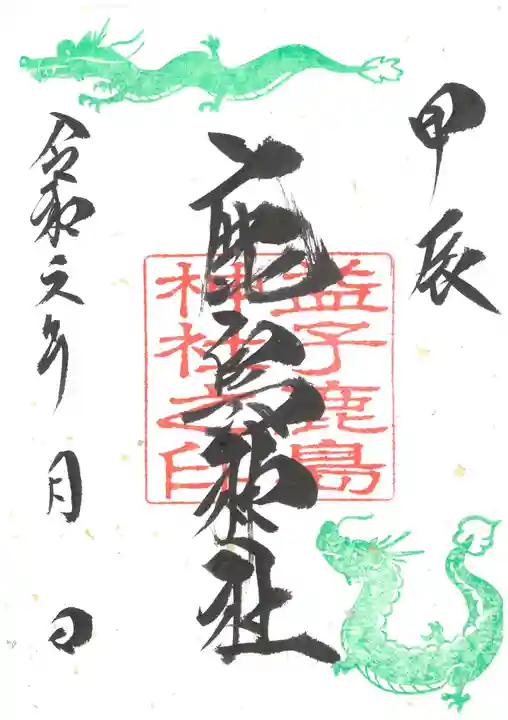 甲辰
鹿島神社
益子鹿島
神社之印
令和六年 月 日